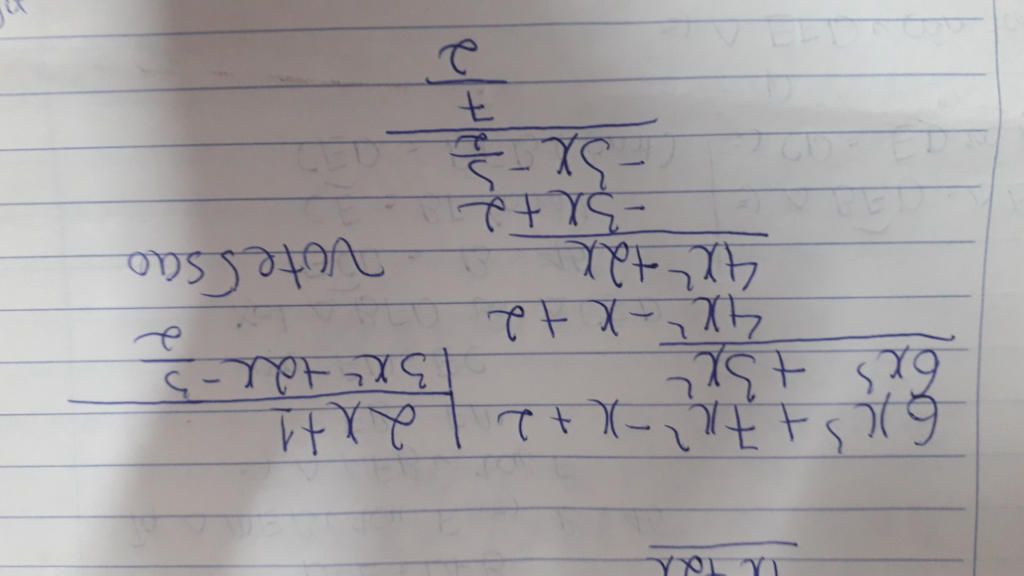 6x³ + 7x² - x + 2 | 2x+1
6x³ + 3x² | 3x² + 2x - 3/2
4x² - x + 2
4x² + 2x
-3x + 2
-3x - 3/2
7/2